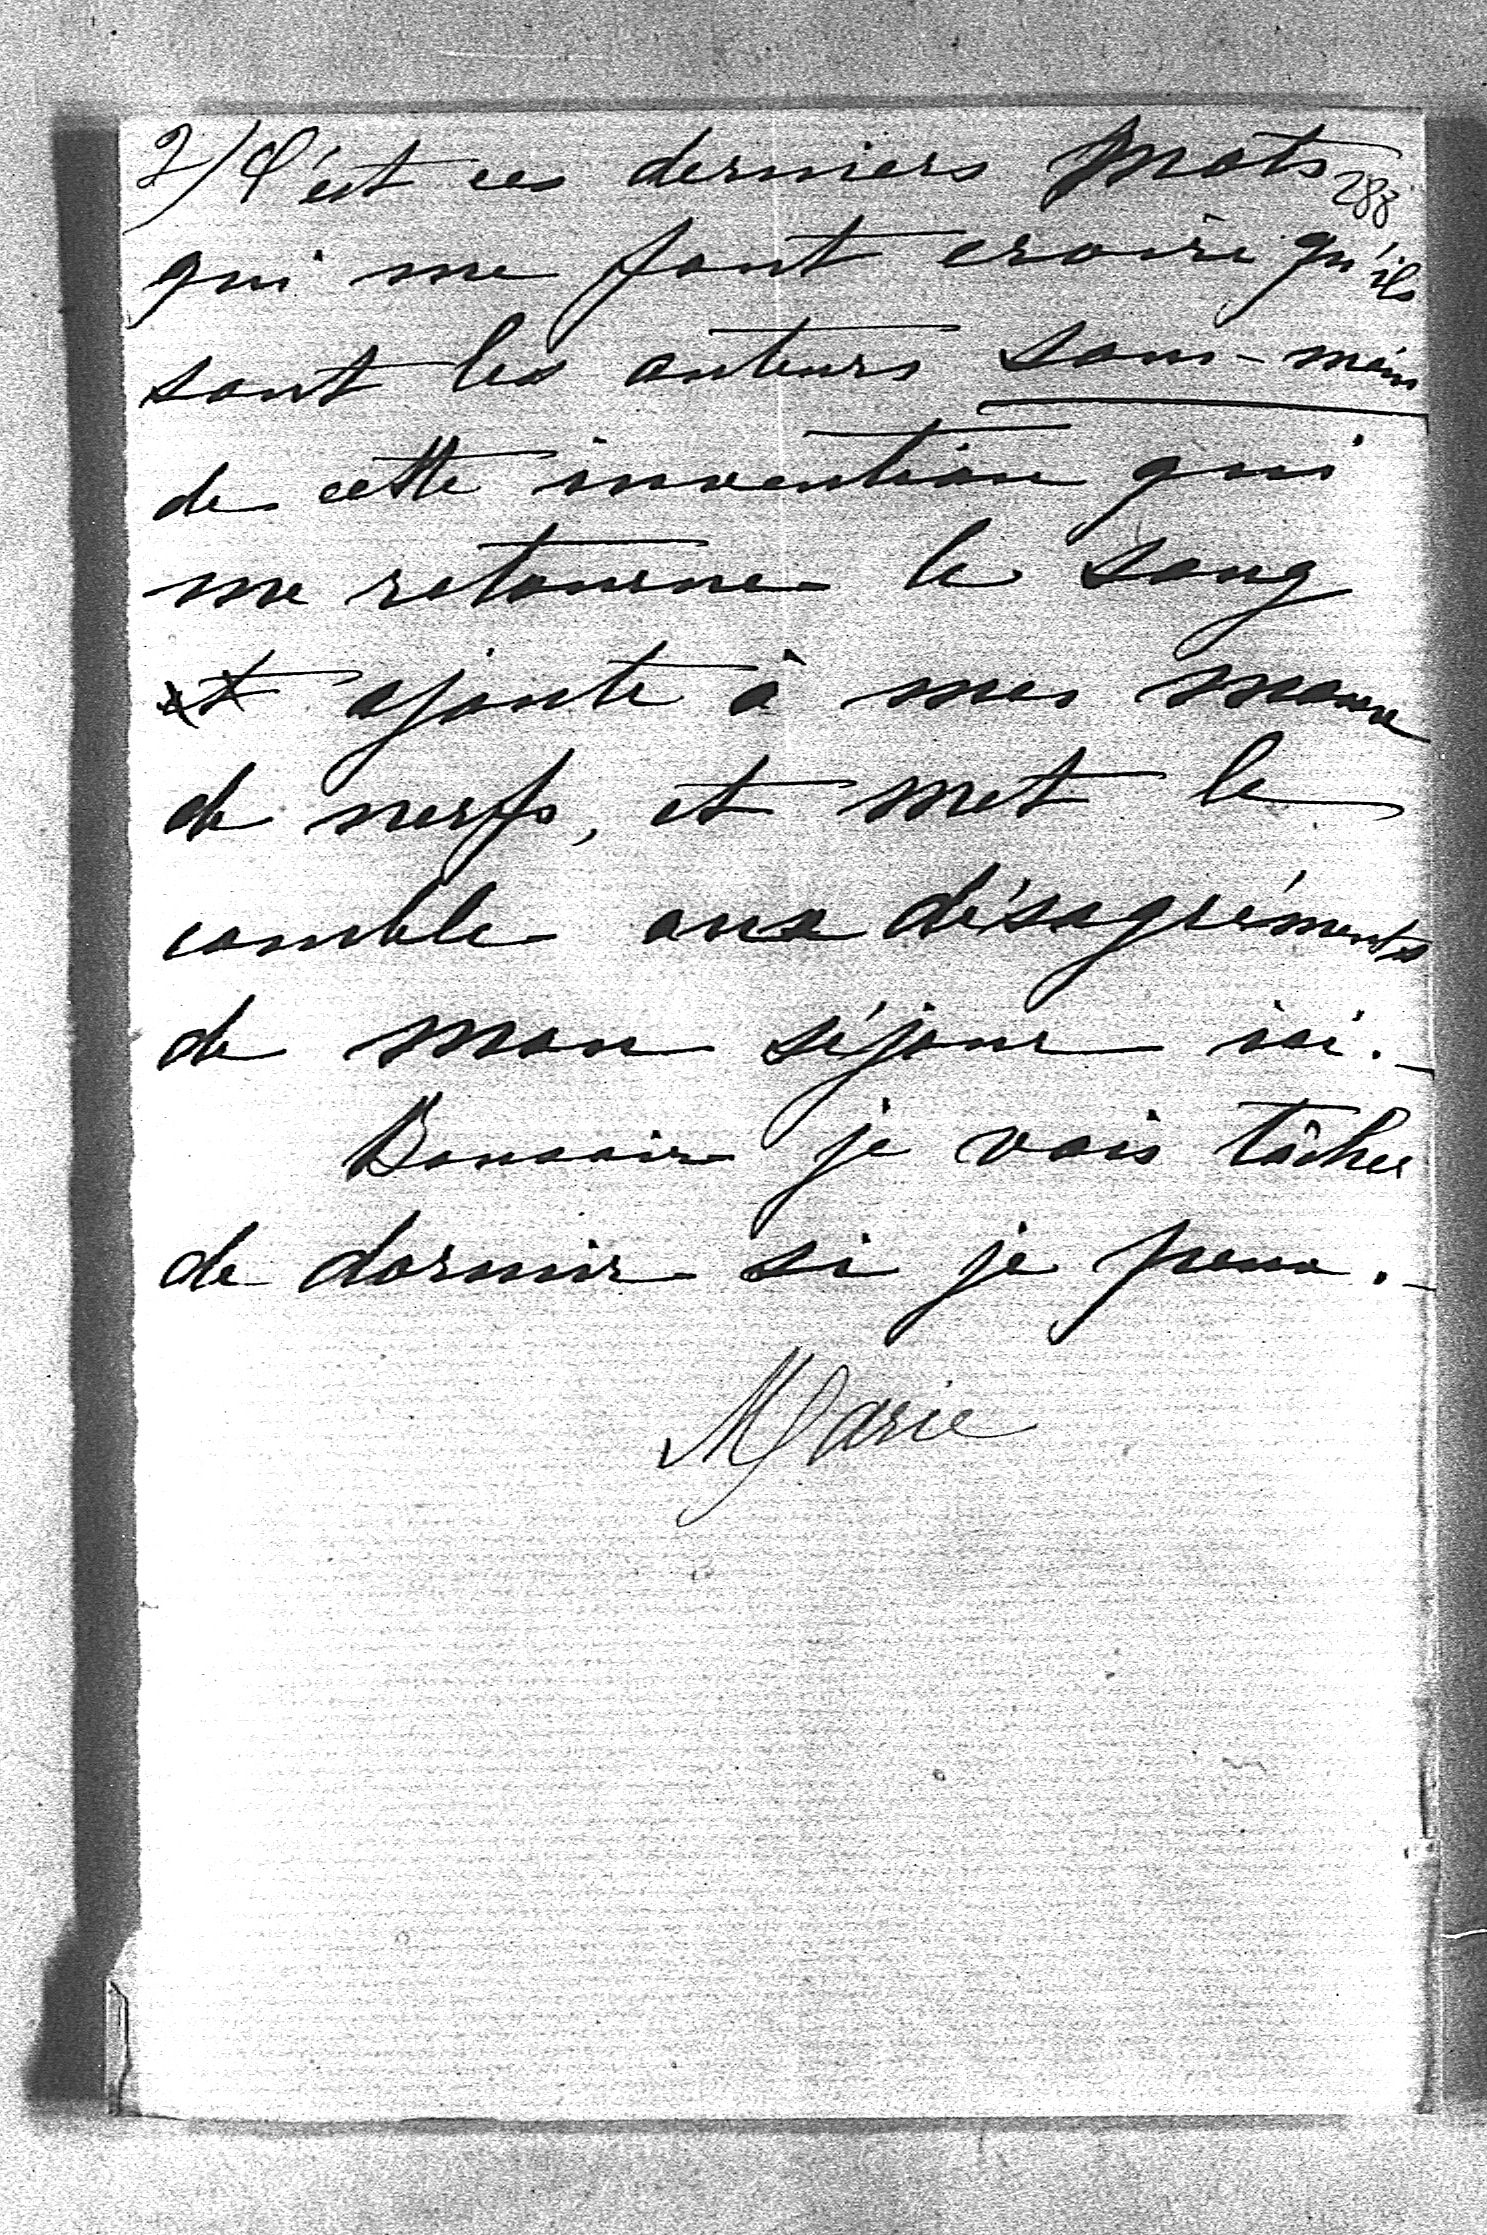 2/ C'est ces derniers mots 288
qui me font croire qu'ils
sont les auteurs sous-main
de cette invention qui
me retourne le sang
et ajoute à mes maux
de nerfs, et met le
comble aux désagréments
de mon séjour ici.
Bonsoir je vais tâcher
de dormir si je peux.
Marie